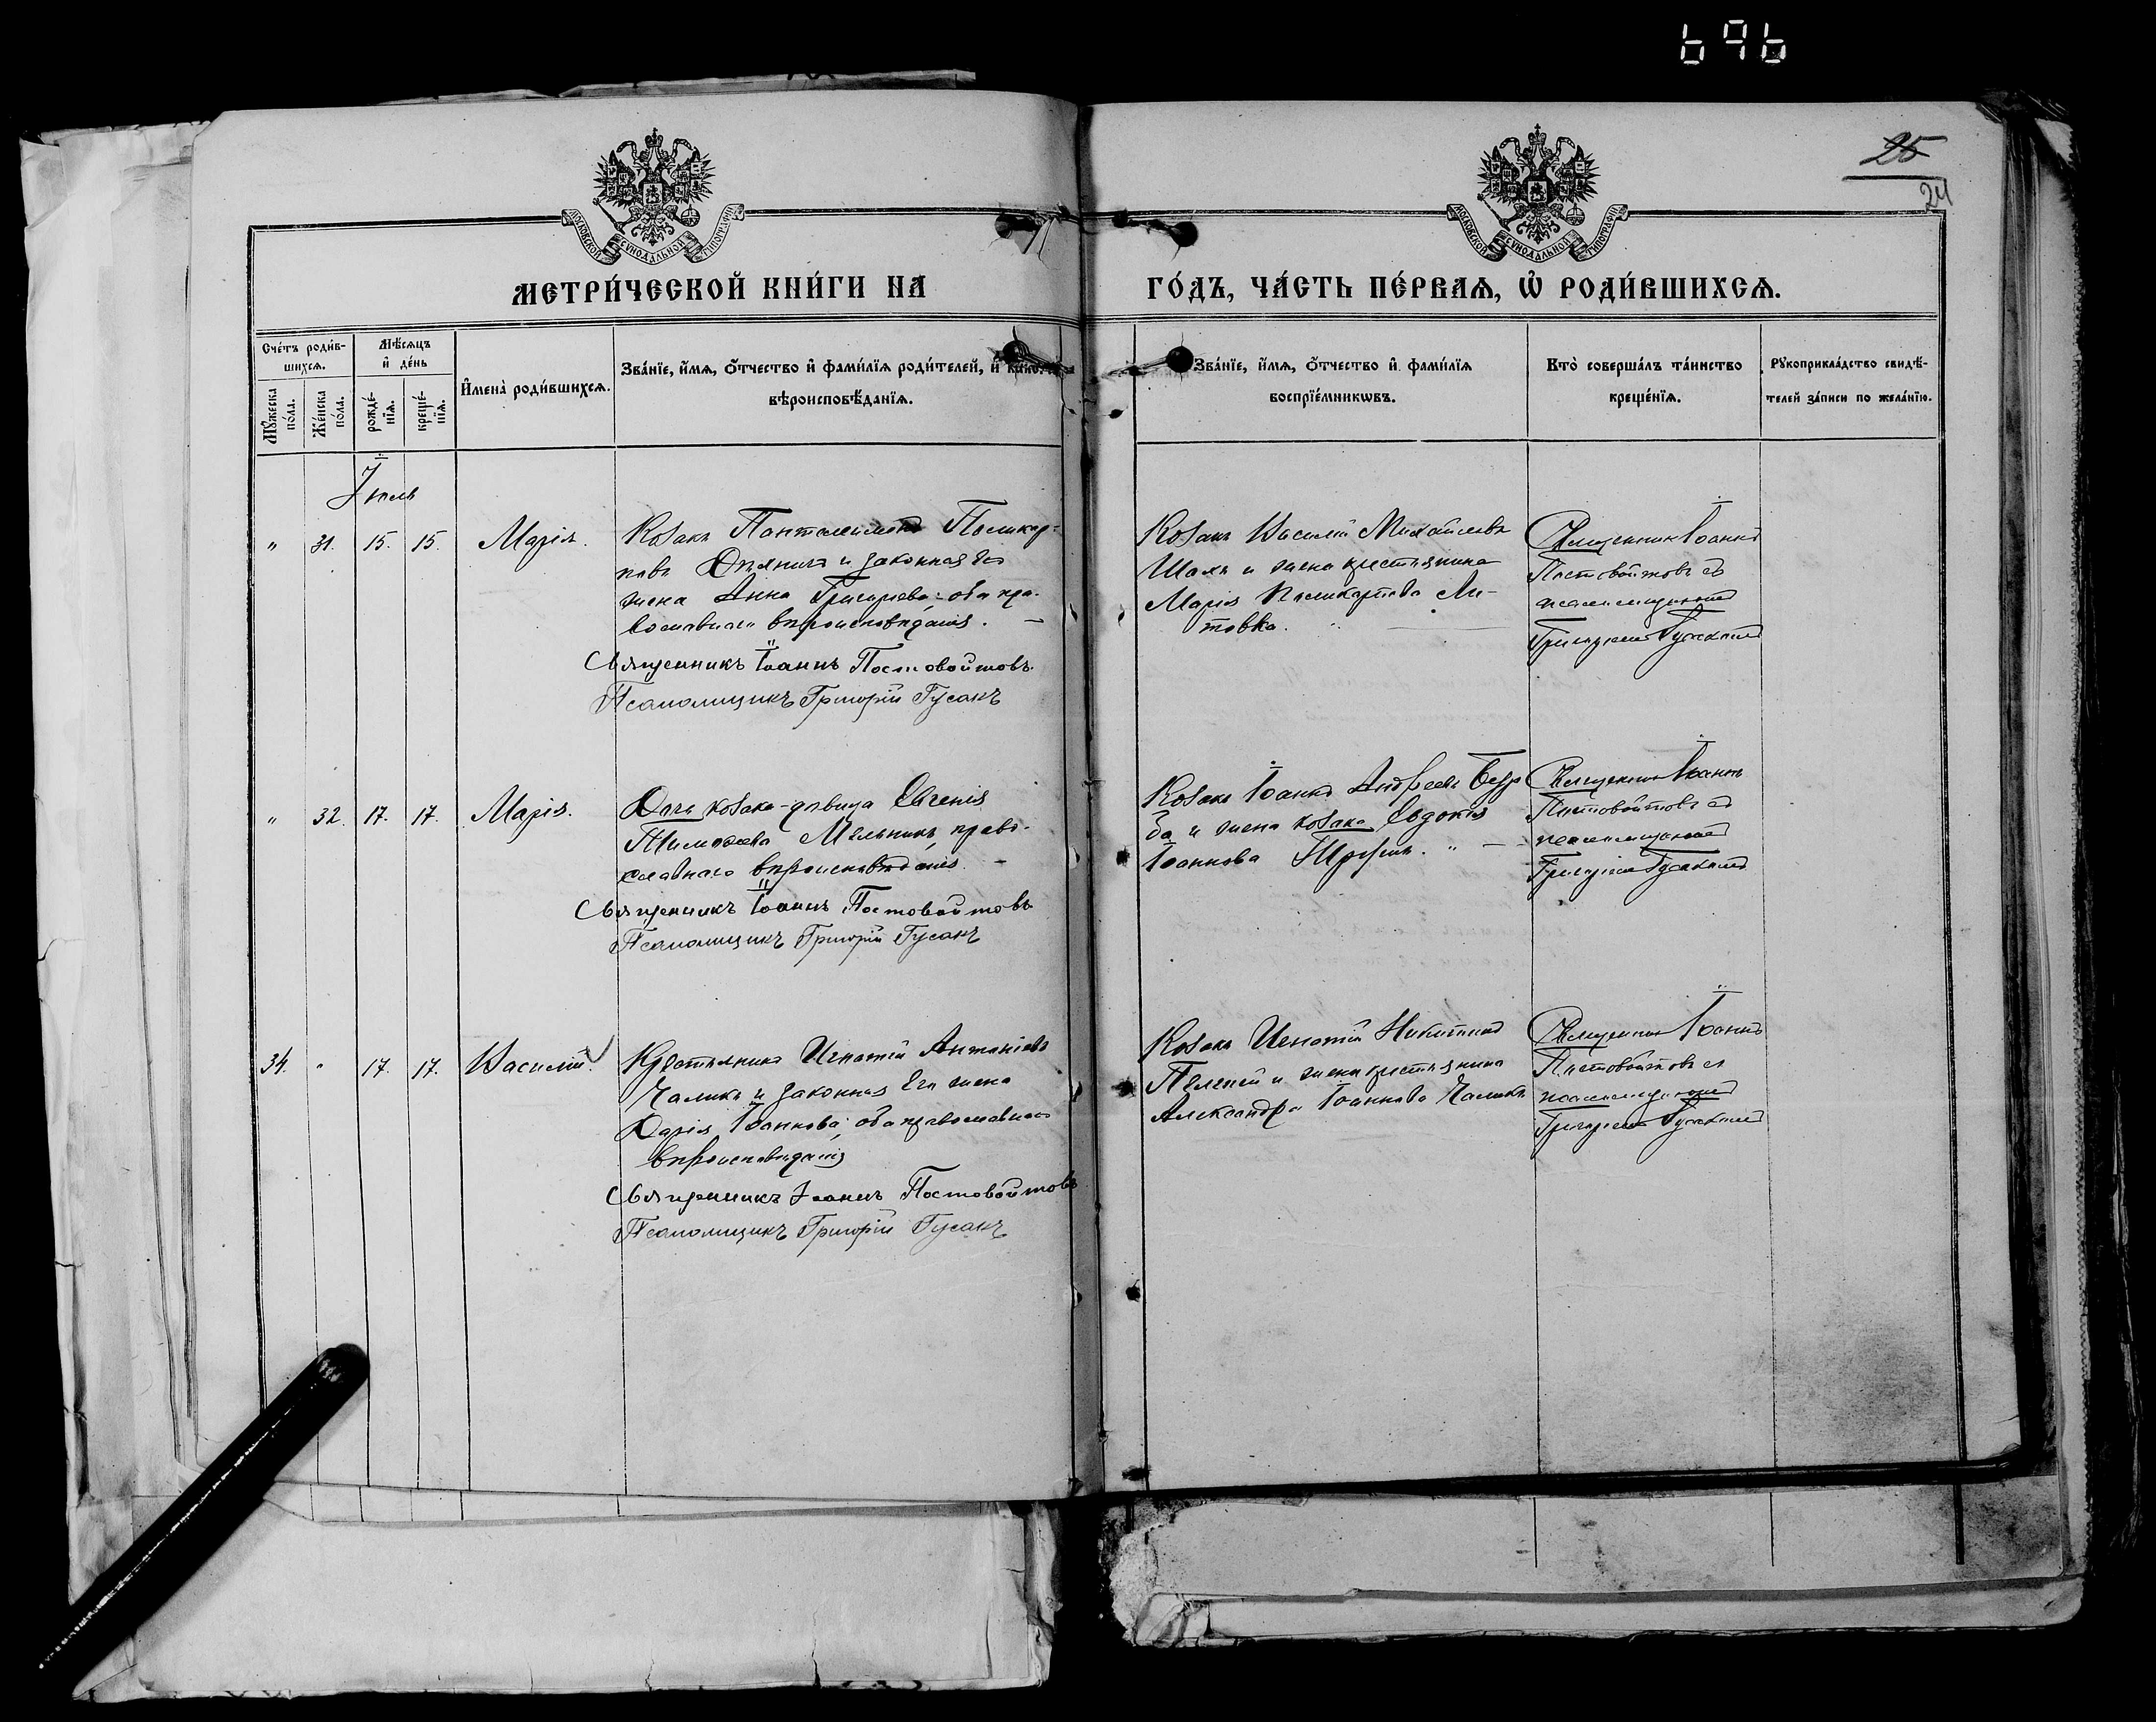 696
25
24
МОСКОВСКОЙ СѴНОДАЛЬНОЙ ТИПОГРАФІИ
МОСКОВСКОЙ СѴНОДАЛЬНОЙ ТИПОГРАФІИ
МЕТРИ́ЧЕСКОЙ КНИ́ГИ НА
ГО́ДЪ, ЧА́СТЬ ПЕ́РВАѦ, Ѡ҆ РОДИ́ВШИХСѦ.
Сче́тъ роди́в-
шихсѧ.
Мѣ́сѧцъ
и҆ де́нь
Мꙋ́жеска по́ла.
Же́нска по́ла.
рожде́-
нїѧ.
креще́-
нїѧ.
И҆мена̀ роди́вшихсѧ.
Зва́нїе, и҆́мѧ, ѻ҆́тчество и҆ фами́лїѧ роди́телей, и҆
вѣроисповѣ́данїѧ.
Зва́нїе, и҆́мѧ, ѻ҆́тчество и҆ фами́лїѧ
воспрїе́мникѡвъ.
Кто̀ соверша́лъ та́инство
креще́нїѧ.
Рꙋкоприкла́дство свидѣ́-
телей за́писи по жела́нїю.
Іюль
" 31. 15. 15. Марія.
Козакъ Пантелеимонъ Поликар-
повъ и законная его
жена Анна Григорьева: оба пра-
вославнаго вѣроисповѣданія.
Священникъ Іоаннъ Постовойтовъ
Псаломщикъ Григорій Гусакъ
Козакъ Василій Михайловъ
Шахъ и жена крестьянина
Марія Поликарпова Ли-
товка.
Священникъ Іоаннъ
Постовойтовъ съ
псаломщикомъ
Григоріемъ Гусакомъ
" 32. 17. 17. Марія.
Дочь козака-дѣвица Евгенія
Тимофеева Мельникъ, право-
славнаго вѣроисповѣданія.
Священникъ Іоаннъ Постовойтовъ
Псаломщикъ Григорій Гусакъ
Козакъ Іоаннъ Андреевъ
и жена козака Евдокія
Іоаннова
Священникъ Іоаннъ
Постовойтовъ съ
псаломщикомъ
Григоріемъ Гусакомъ
34. " 17. 17. Василій.
Крестьянинъ Игнатій Антоніевъ
Чалыкъ и законная его жена
Дарія Іоаннова; оба православнаго
вѣроисповѣданія
Священникъ Іоаннъ Постовойтовъ
Псаломщикъ Григорій Гусакъ
Козакъ Игнатій Никитинъ
и жена крестьянина
Александра Іоаннова Чалыкъ
Священникъ Іоаннъ
Постовойтовъ съ
псаломщикомъ
Григоріемъ Гусакомъ